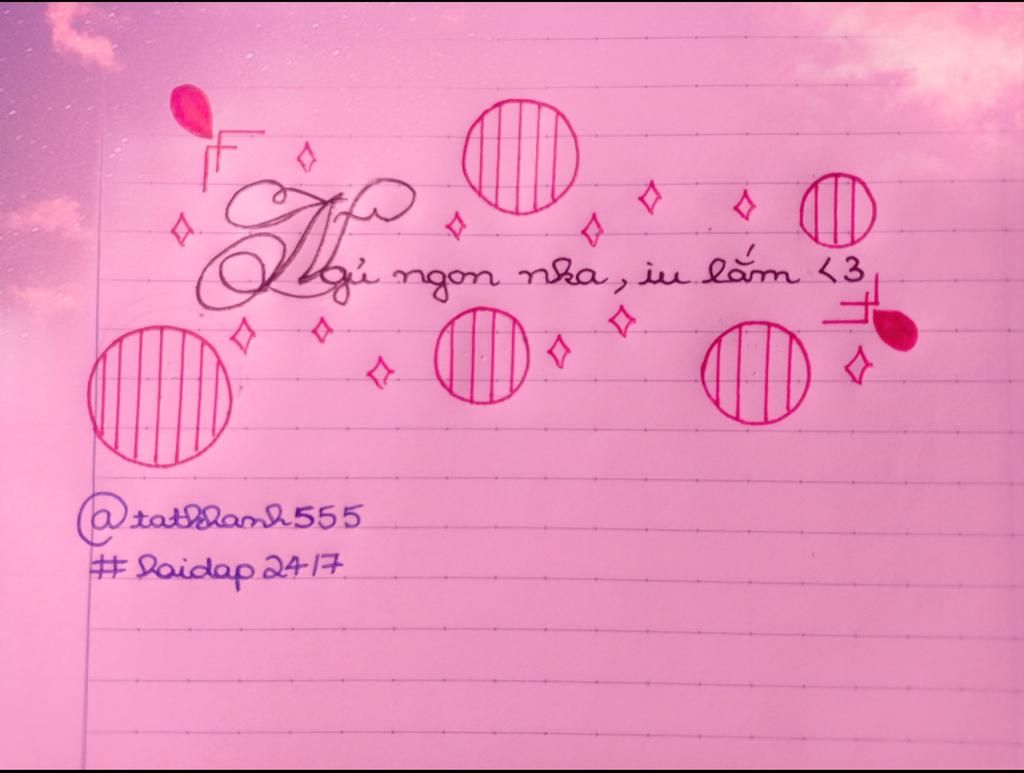 Ngủ ngon nka, iu lắm <3
@tatkhanh555
#hoidap247